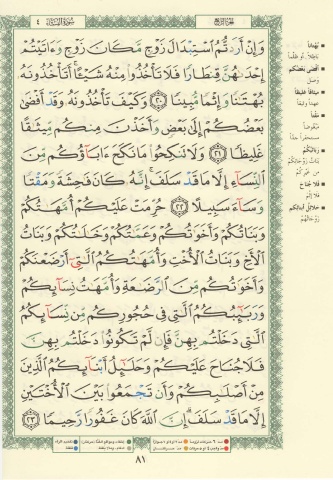 سُورَةُ النِّسَاءِ ٤
الجزء الرابع
وَإِنْ أَرَدتُّمُ ٱسْتِبْدَالَ زَوْجٍ مَّكَانَ زَوْجٍ وَءَاتَيْتُمْ
إِحْدَىٰهُنَّ قِنطَارًا فَلَا تَأْخُذُوا۟ مِنْهُ شَيْـًٔا ۚ أَتَأْخُذُونَهُۥ
بُهْتَٰنًا وَإِثْمًا مُّبِينًا ٢٠ وَكَيْفَ تَأْخُذُونَهُۥ وَقَدْ أَفْضَىٰ
بَعْضُكُمْ إِلَىٰ بَعْضٍ وَأَخَذْنَ مِنكُم مِّيثَٰقًا
غَلِيظًا ٢١ وَلَا تَنكِحُوا۟ مَا نَكَحَ ءَابَآؤُكُم مِّنَ
ٱلنِّسَآءِ إِلَّا مَا قَدْ سَلَفَ ۚ إِنَّهُۥ كَانَ فَٰحِشَةً وَمَقْتًا
وَسَآءَ سَبِيلًا ٢٢ حُرِّمَتْ عَلَيْكُمْ أُمَّهَٰتُكُمْ
وَبَنَاتُكُمْ وَأَخَوَٰتُكُمْ وَعَمَّٰتُكُمْ وَخَٰلَٰتُكُمْ وَبَنَاتُ
ٱلْأَخِ وَبَنَاتُ ٱلْأُخْتِ وَأُمَّهَٰتُكُمُ ٱلَّٰتِىٓ أَرْضَعْنَكُمْ
وَأَخَوَٰتُكُم مِّنَ ٱلرَّضَٰعَةِ وَأُمَّهَٰتُ نِسَآئِكُمْ
وَرَبَٰٓئِبُكُمُ ٱلَّٰتِى فِى حُجُورِكُم مِّن نِّسَآئِكُمُ
ٱلَّٰتِى دَخَلْتُم بِهِنَّ فَإِن لَّمْ تَكُونُوا۟ دَخَلْتُم بِهِنَّ
فَلَا جُنَاحَ عَلَيْكُمْ وَحَلَٰٓئِلُ أَبْنَآئِكُمُ ٱلَّذِينَ
مِنْ أَصْلَٰبِكُمْ وَأَن تَجْمَعُوا۟ بَيْنَ ٱلْأُخْتَيْنِ
إِلَّا مَا قَدْ سَلَفَ ۗ إِنَّ ٱللَّهَ كَانَ غَفُورًا رَّحِيمًا ٢٣
بُهْتَانًا
أفضى بعضكم
وصل
ميثاقًا غليظًا
مقتًا
ربائبكم
فلا جناح
حلائل أبنائكم
زوجاتهم
٨١